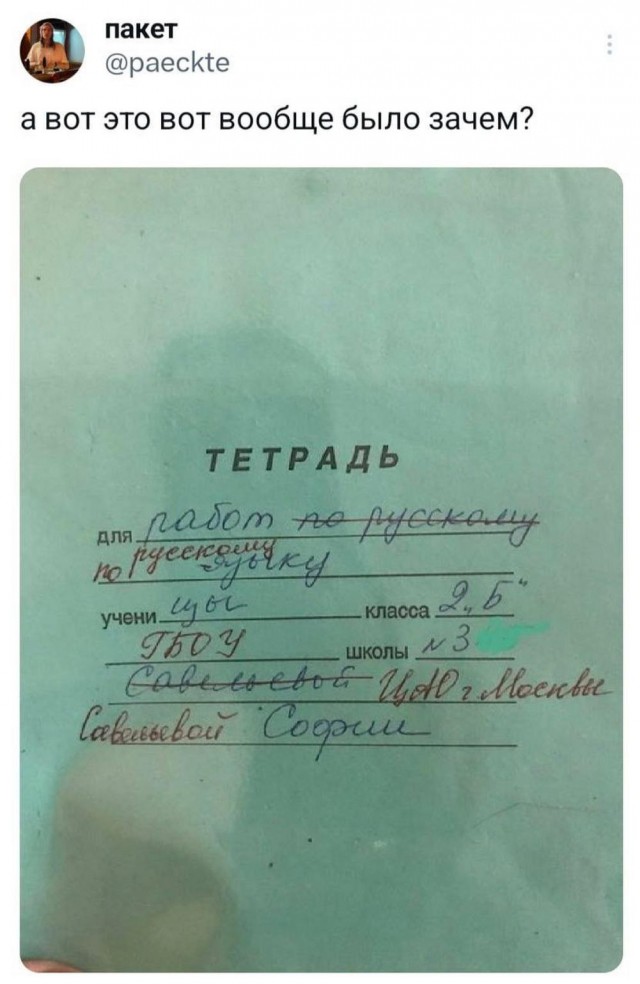 пакет
@paeckte
а вот это вот вообще было зачем?
ТЕТРАДЬ
для работ по русскому
по русскому языку
учени цы класса 2„Б"
ГБОУ школы №3
Савельевой ЦАО г Москвы
Савельевой Софии